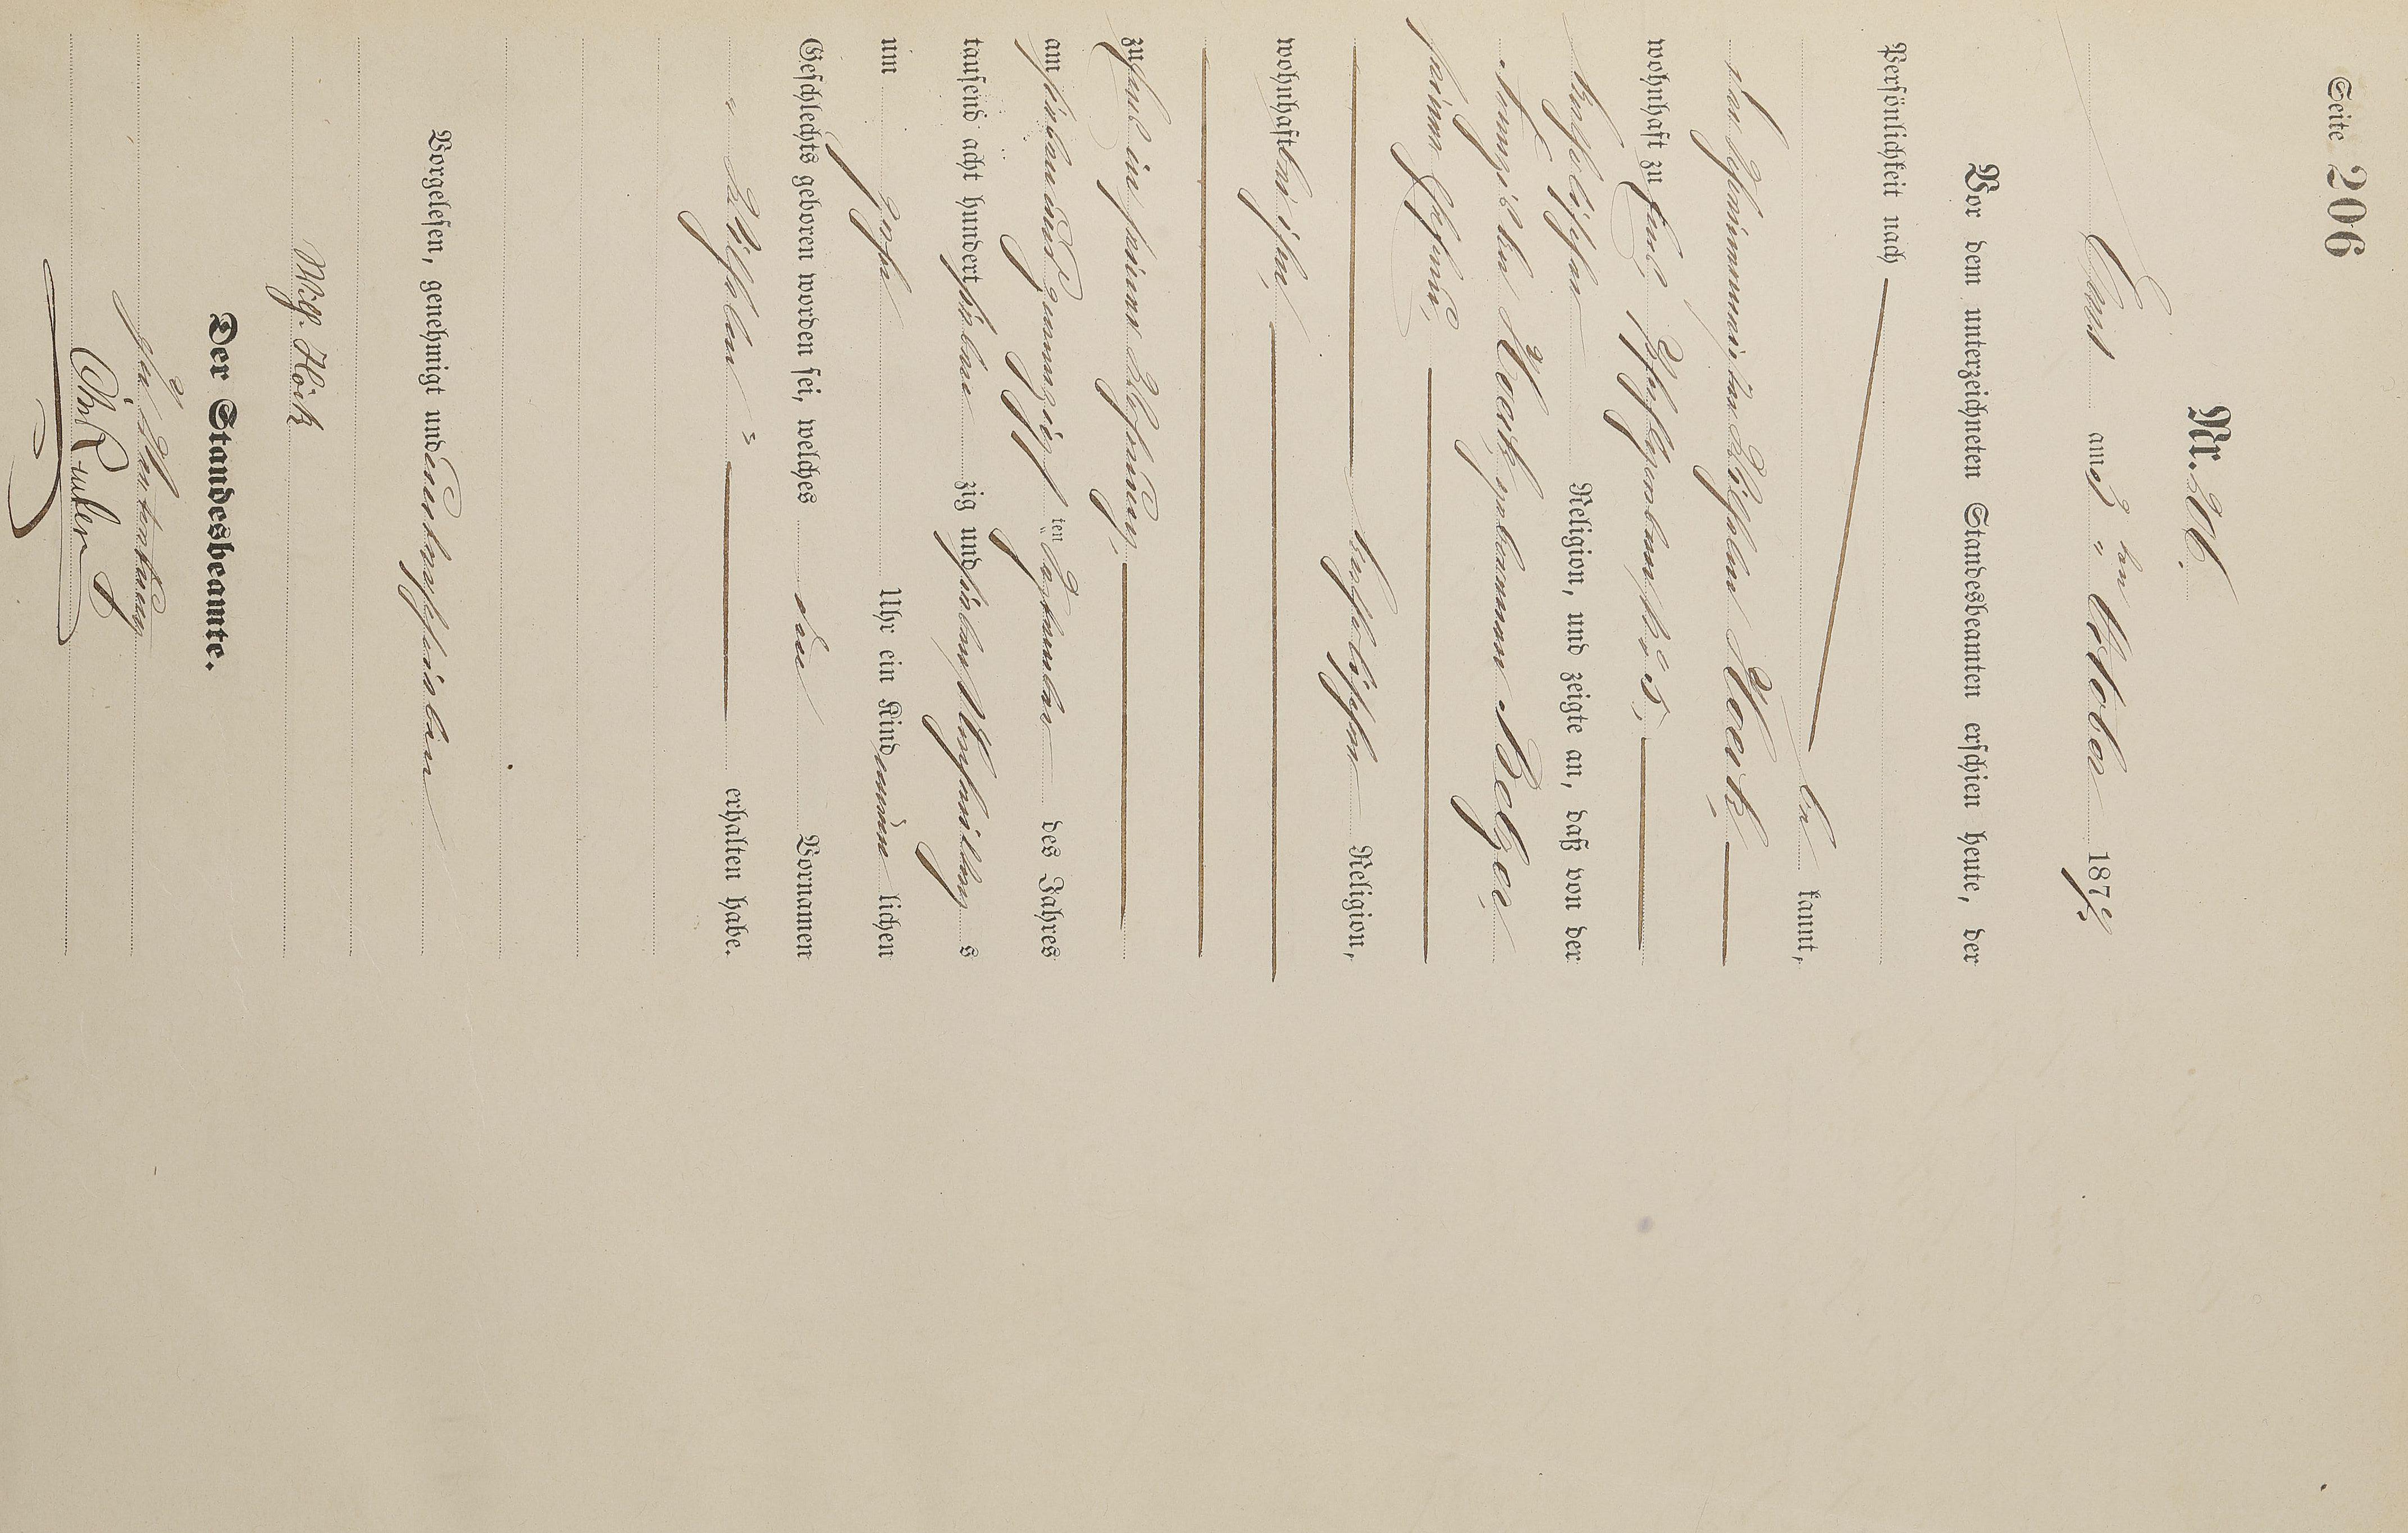 Seite 206
Nr. 206.
Ems am 3ten October 1877
Vor dem unterzeichneten Standesbeamten erschien heute, der
Persönlichkeit nach
be kannt,
der Wilhelm Hoerk
wohnhaft zu Ems,
katholischer Religion, und zeigte an, daß von der
Hoerk geborenen Belzer
seiner Ehefrau,
katholischer Religion,
wohnhaft bei ihm,
zu Ems in seiner Wohnung,
am sieben und zwanzigsten September des Jahres
tausend acht hundert siebenzig und sieben Vormittags
um Uhr ein Kind männlichen
Geschlechts geboren worden sei, welches den Vornamen
"Wilhelm" erhalten habe.
Vorgelesen, genehmigt und unterschrieben
Wilh. Hörk
Der Standesbeamte.
In Vertretung